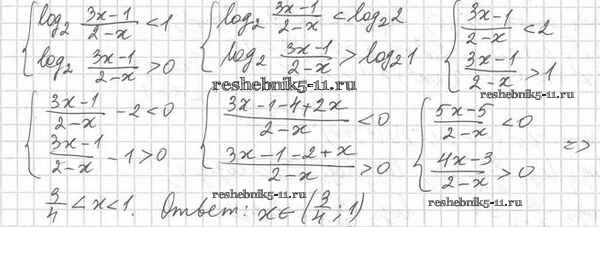 { log₂ (3x-1)/(2-x) < 1   { log₂ (3x-1)/(2-x) < log₂2   { (3x-1)/(2-x) < 2
{ log₂ (3x-1)/(2-x) > 0   { log₂ (3x-1)/(2-x) > log₂1   { (3x-1)/(2-x) > 1
reshebnik5-11.ru   reshebnik5-11.ru
{ (3x-1)/(2-x) - 2 < 0   { (3x-1-4+2x)/(2-x) < 0   { (5x-5)/(2-x) < 0   <=>
{ (3x-1)/(2-x) - 1 > 0   { (3x-1-2+x)/(2-x) > 0   { (4x-3)/(2-x) > 0
reshebnik5-11.ru   reshebnik5-11.ru
3/4 < x < 1. Ответ: x∈(3/4; 1)